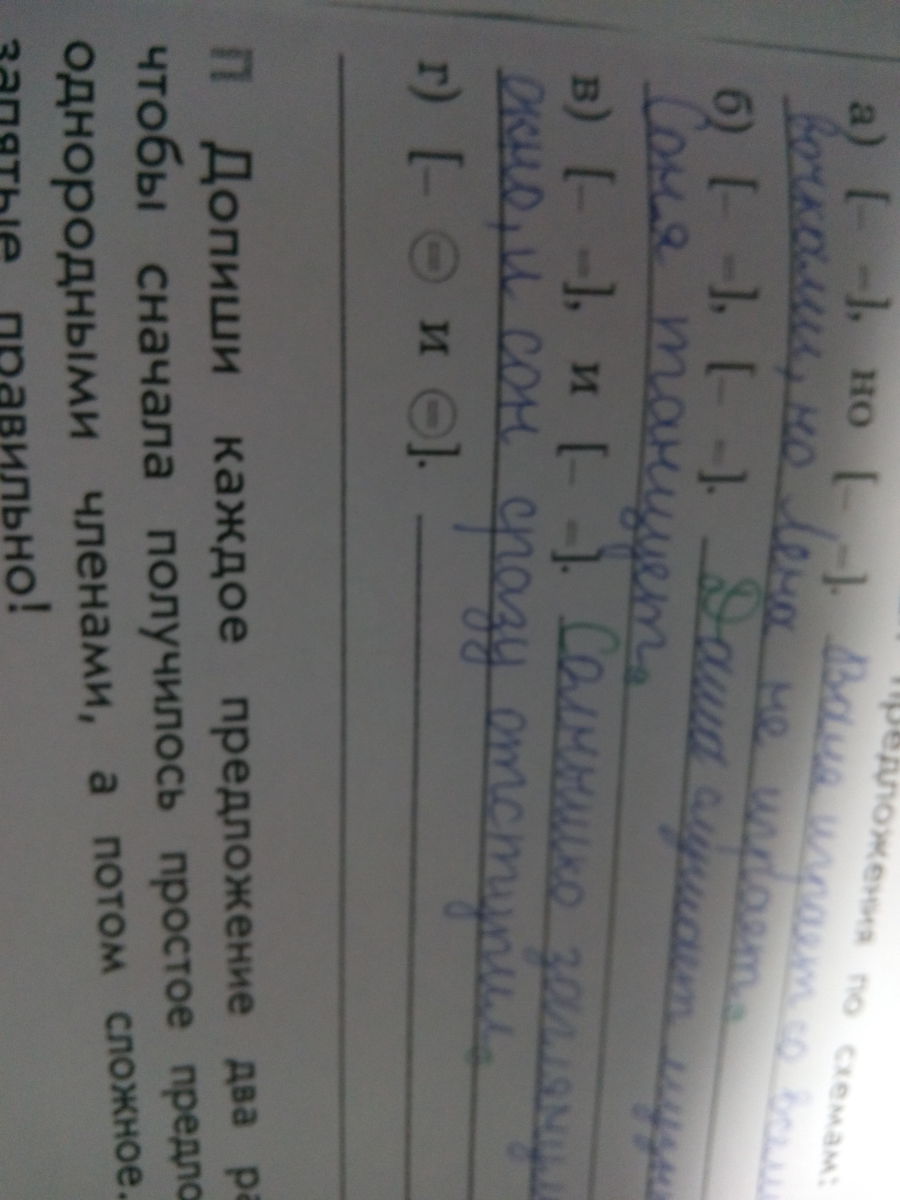 предложения по схемам:
а) [– =], но [– =]. Ваня играет со всеми
вочками, но Лена не играет.
б) [– =], [– =]. Даша слушает музы
Соня танцует.
в) [– =], и [– =]. Солнышко заглянул
окно, и сон сразу отступил.
г) [– ⊜ и ⊜].
П Допиши каждое предложение два ра
чтобы сначала получилось простое предло
однородными членами, а потом сложное.
запятые правильно!